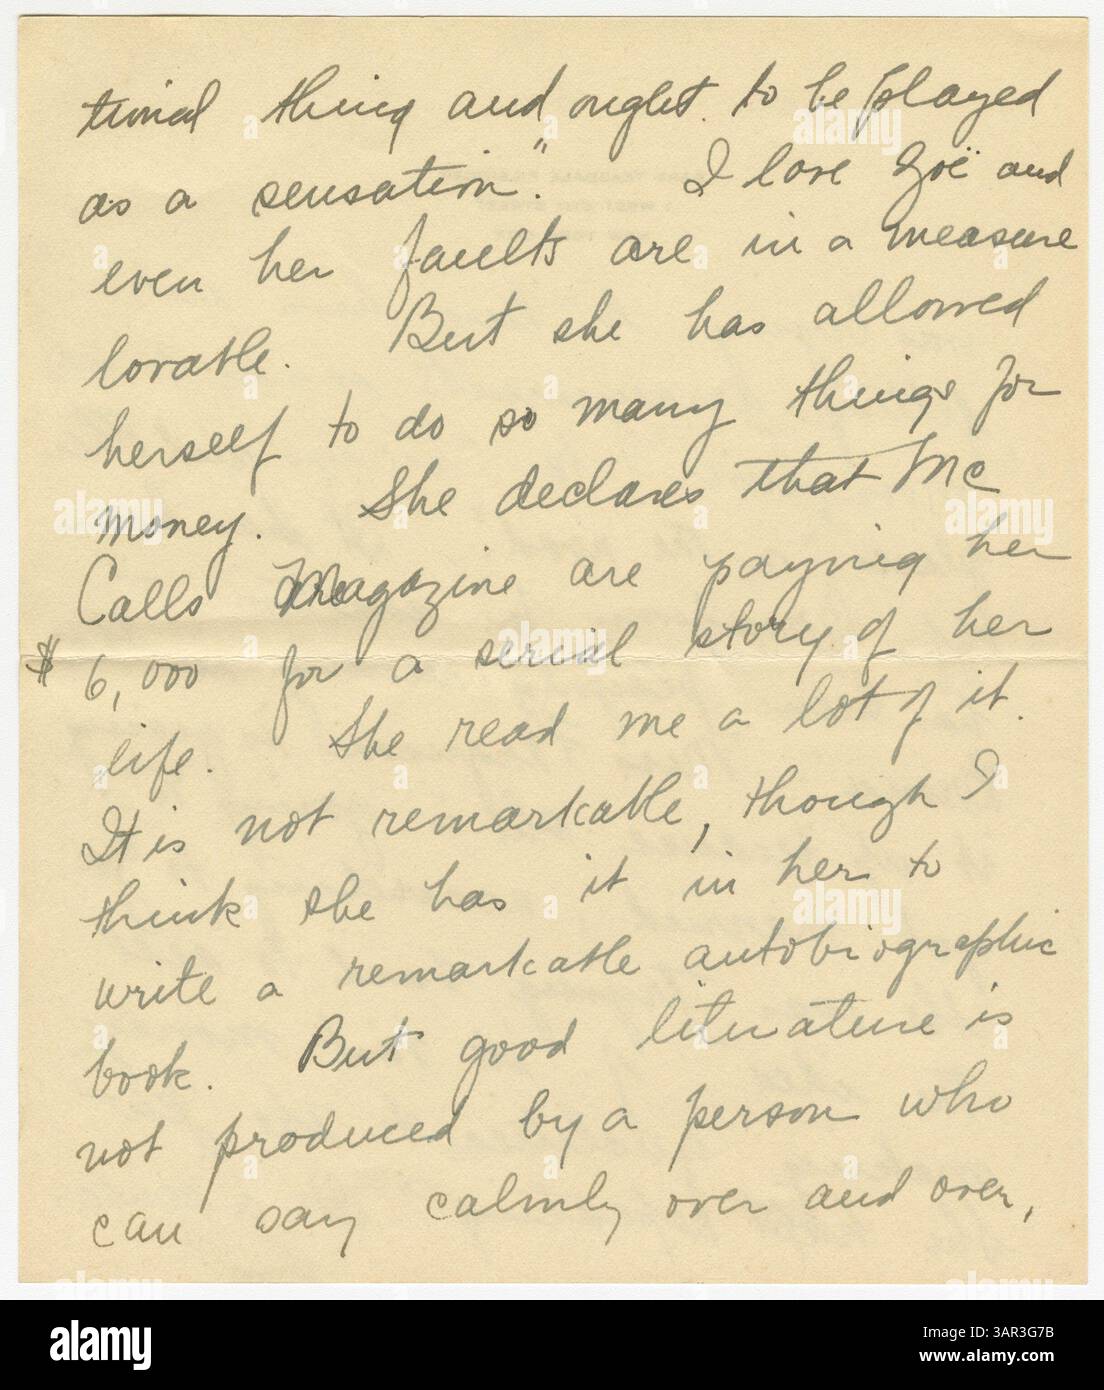 tional thing and ought to be played
as a sensation." I love Zoë and
even her faults are in a measure
lovable. But she has allowed
herself to do so many things for
money. She declares that Mc
Calls Magazine are paying her
$6,000 for a serial story of her
life. She read me a lot of it.
It is not remarkable, though I
think she has it in her to
write a remarkable autobiographic
book. But good literature is
not produced by a person who
can say calmly over and over,
alamy
Image ID: 3AR3G7B
www.alamy.com